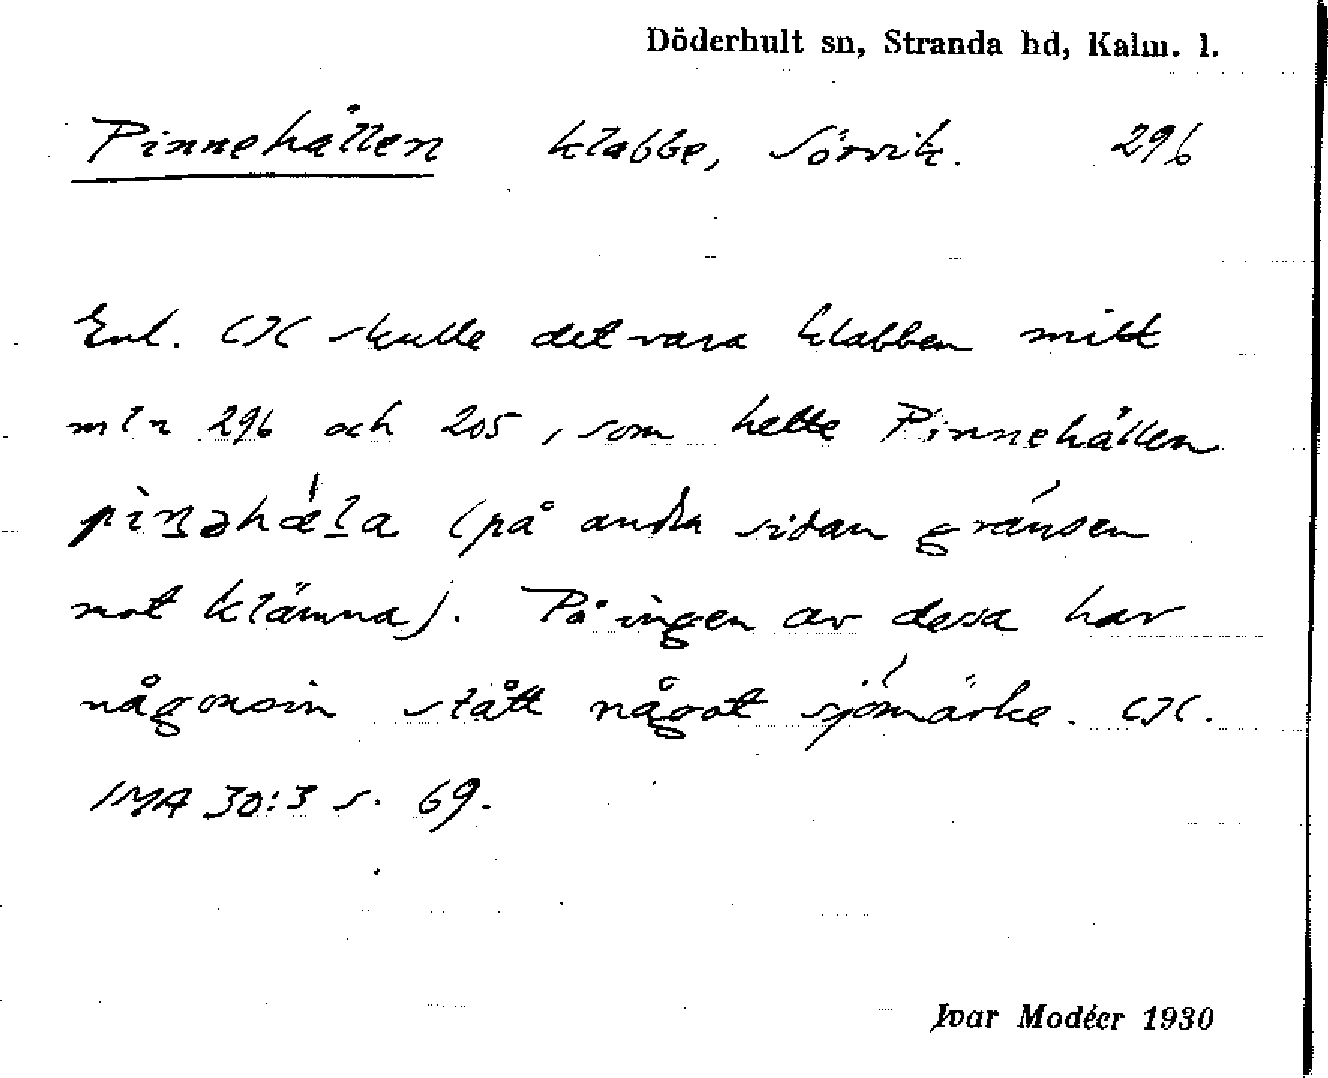 Döderhult sn, Stranda hd, Kalm. l.
Pinnehällen klabbe, Sörvik. 296
Enl. CJK skulle det vara klabben mitt
mln 296 och 205, som hette Pinnehällen
(på andra sidan gränsen
mot klämna). På ingen av dessa har
någonsin stått något sjömärke. CJK.
IMA 30:3 s. 69.
Ivar Modéer 1930